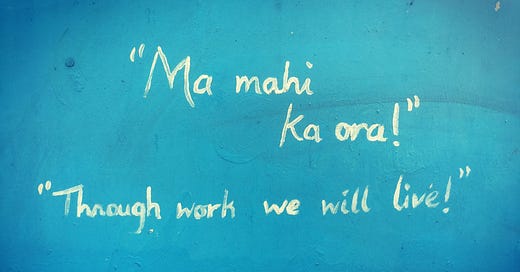 “Ma mahi
ka ora!”
“Through work we will live!”